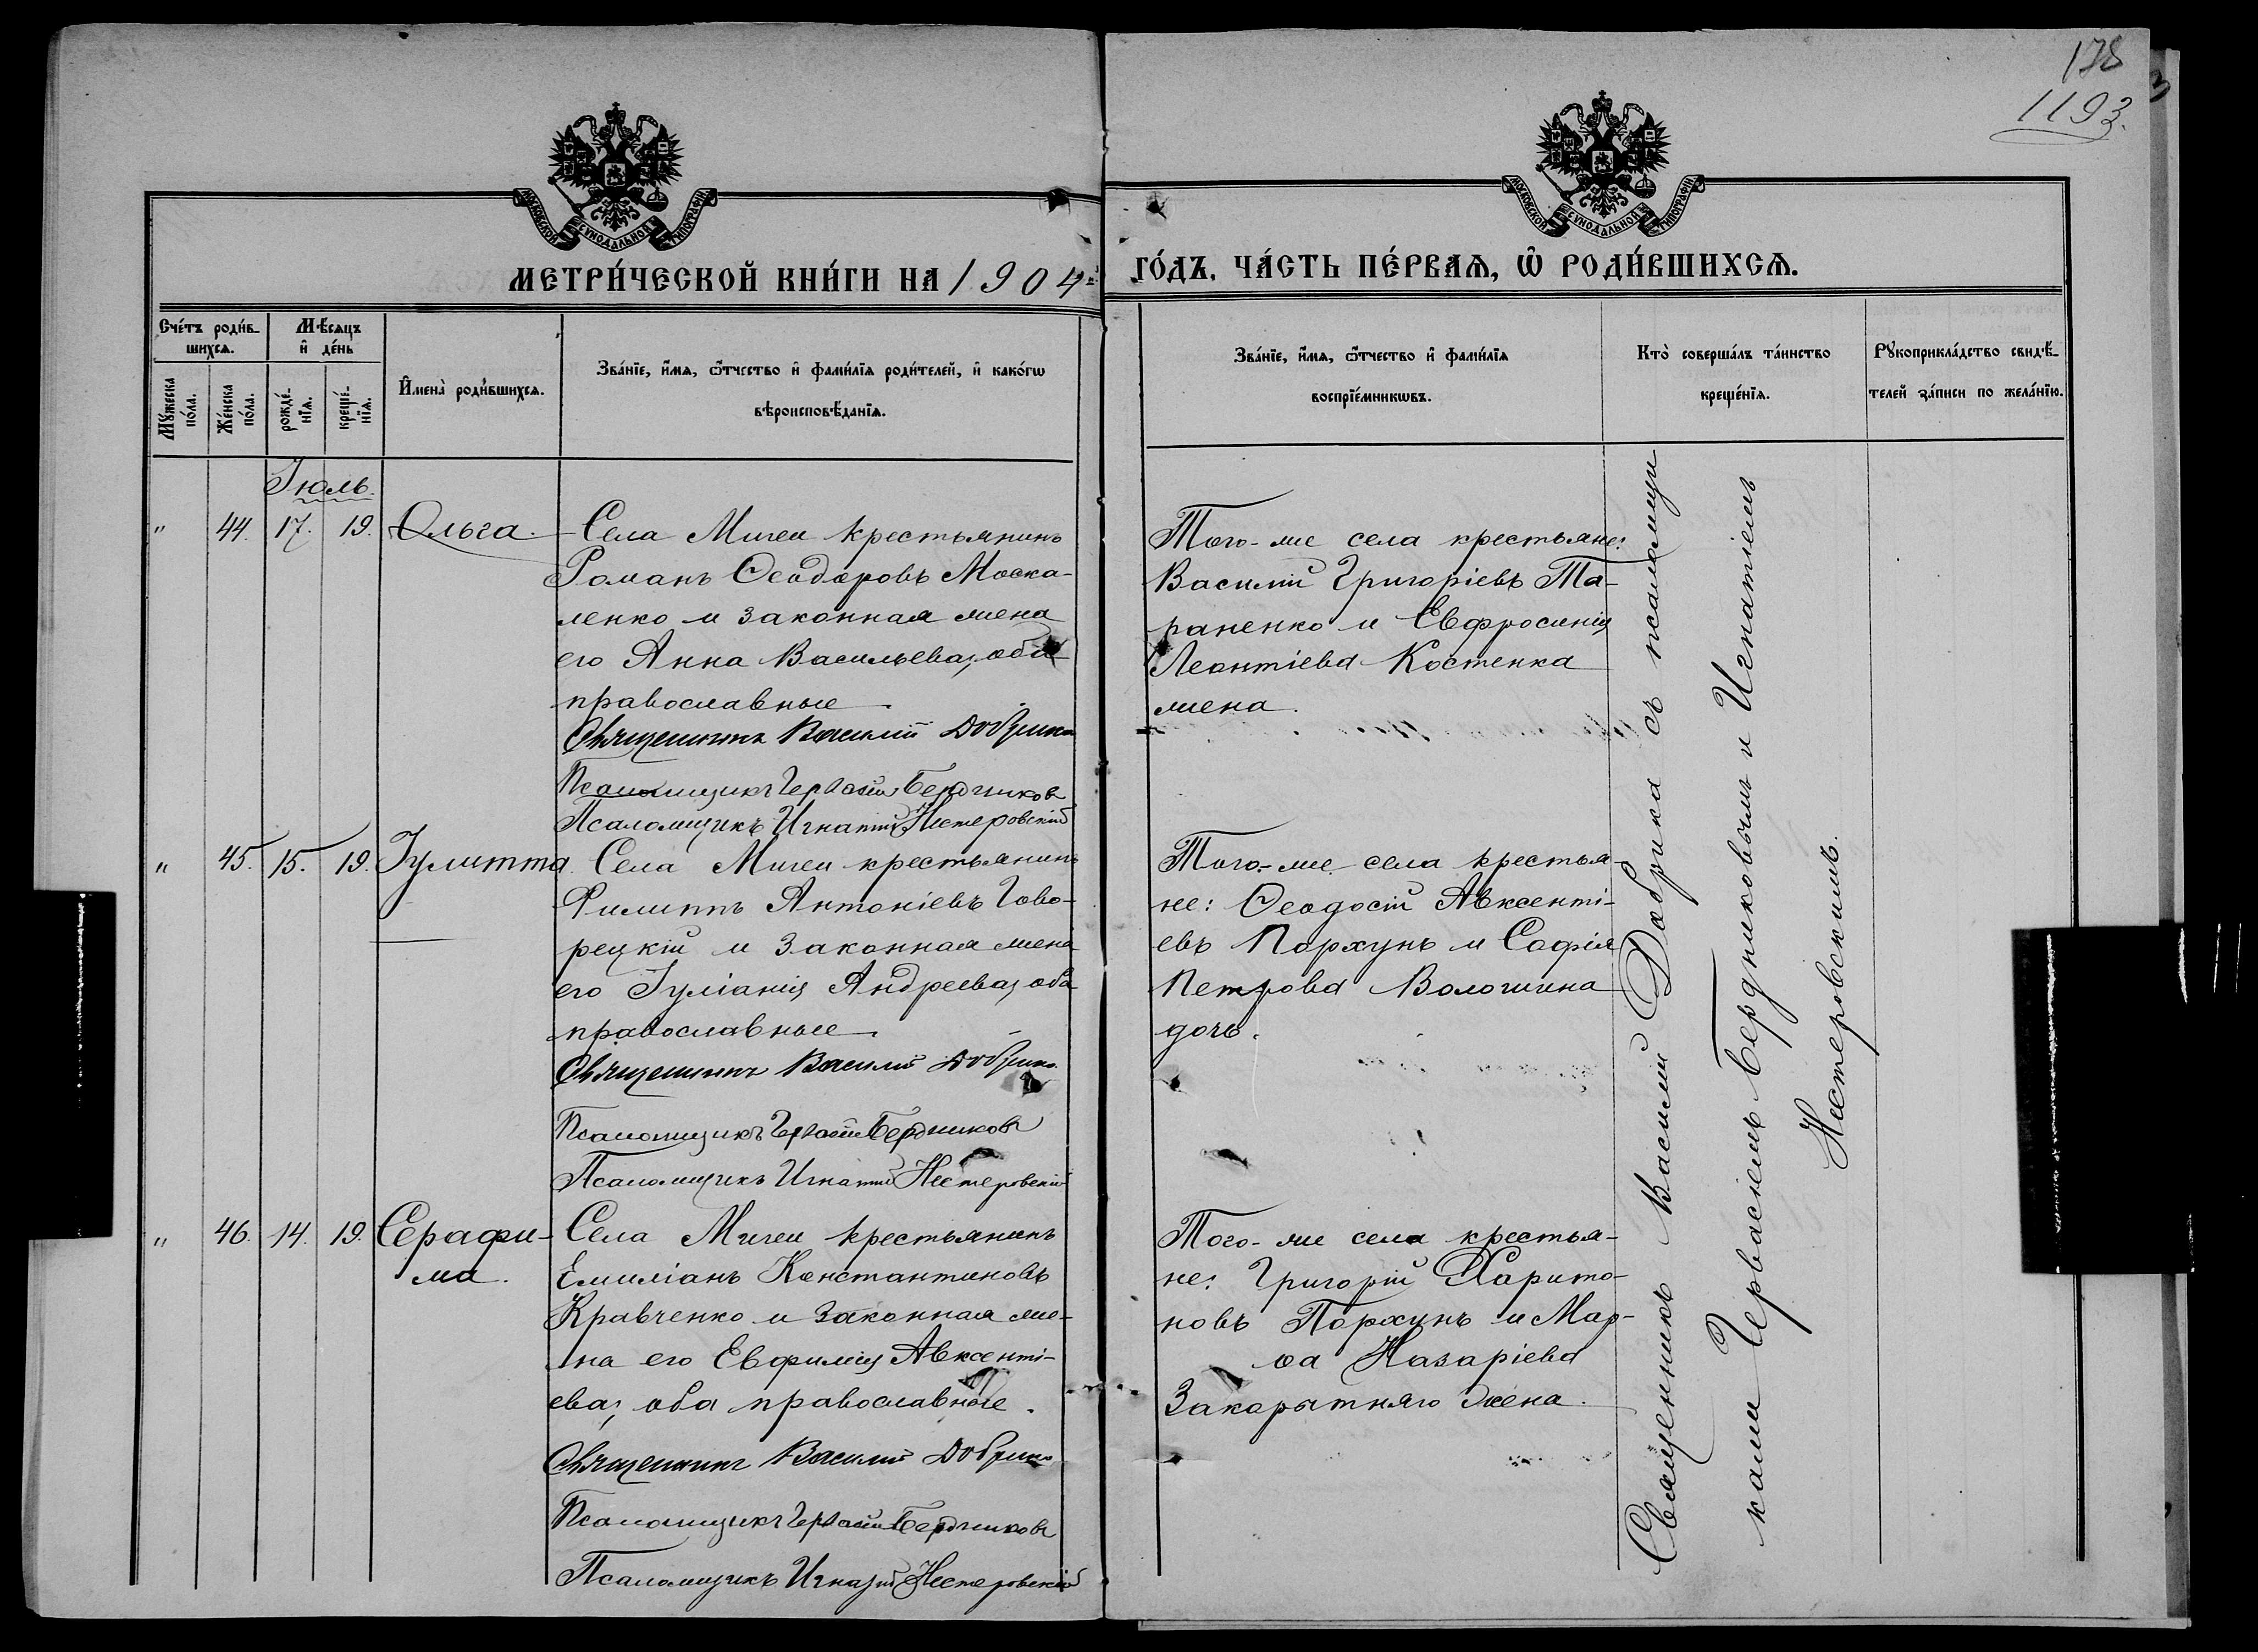 178
1193.
МОСКОВСКОЙ СѴНОДАЛЬНОЙ ТИПОГРАФІИ
МОСКОВСКОЙ СѴНОДАЛЬНОЙ ТИПОГРАФІИ
МЕТРИ́ЧЕСКОЙ КНИ́ГИ НА 1904
ГО́ДЪ. ЧА́СТЬ ПЕ́РВАѦ, Ѡ҆ РОДИ́ВШИХСѦ.
Сче́тъ роди́в-
шихсѧ.
Мꙋжеска по́ла.
Же́нска по́ла.
Мѣ́сѧцъ
и҆ де́нь
рожде́-
нїѧ.
креще́-
нїѧ.
И҆мена̀ роди́вшихсѧ.
Зва́нїе, и҆́мѧ, ѻ҆́тчество и҆ фами́лїѧ роди́телей, и҆ како́гѡ
вѣроисповѣ́данїѧ.
Зва́нїе, и҆́мѧ, ѻ҆́тчество и҆ фами́лїѧ
воспрїе́мникѡвъ.
Кто̀ соверша́лъ та́инство
креще́нїѧ.
Рꙋкоприкла́дство свидѣ́-
телей за́писи по жела́нїю.
Іюль.
" 44. 17. 19. Ольга.
Села Мигеи крестьянинъ
Романъ Ѳеодоровъ Моска-
ленко и законная жена
его Анна Васильева, оба
православные.
Священникъ Василій Добрика
Псаломщикъ Гервасій Бердниковъ
Псаломщикъ Игнатій Нестеровскій
Того-же села крестьяне:
Василій Григоріевъ Та-
раненко и Евфросинія
Леонтіева Костенка
жена.
" 45. 15. 19. Іулитта.
Села Мигеи крестьянинъ
Филиппъ Антоніевъ Гово-
рецкій и законная жена
его Іуліанія Андреева, оба
православные.
Священникъ Василій Добрика
Псаломщикъ Гервасій Бердниковъ
Псаломщикъ Игнатій Нестеровскій
Того-же села крестья-
не: Ѳеодосій Авксенті-
евъ Порхунъ и Софія
Петрова Волошина
дочь.
" 46. 14. 19. Серафи-
ма.
Села Мигеи крестьянинъ
Емиліанъ Константиновъ
Кравченко и законная же-
на его Евфимія Авксенті-
ева, оба православные.
Священникъ Василій Добрика
Псаломщикъ Гервасій Бердниковъ
Псаломщикъ Игнатій Нестеровскій
Того-же села крестья-
не: Григорій Харито-
новъ Порхунъ и Мар-
ѳа Назаріева
Закорытняго жена.
Священникъ Василій Добрика съ псаломщи
ками Гервасіемъ Бердниковымъ и Игнатіемъ
Нестеровскимъ.